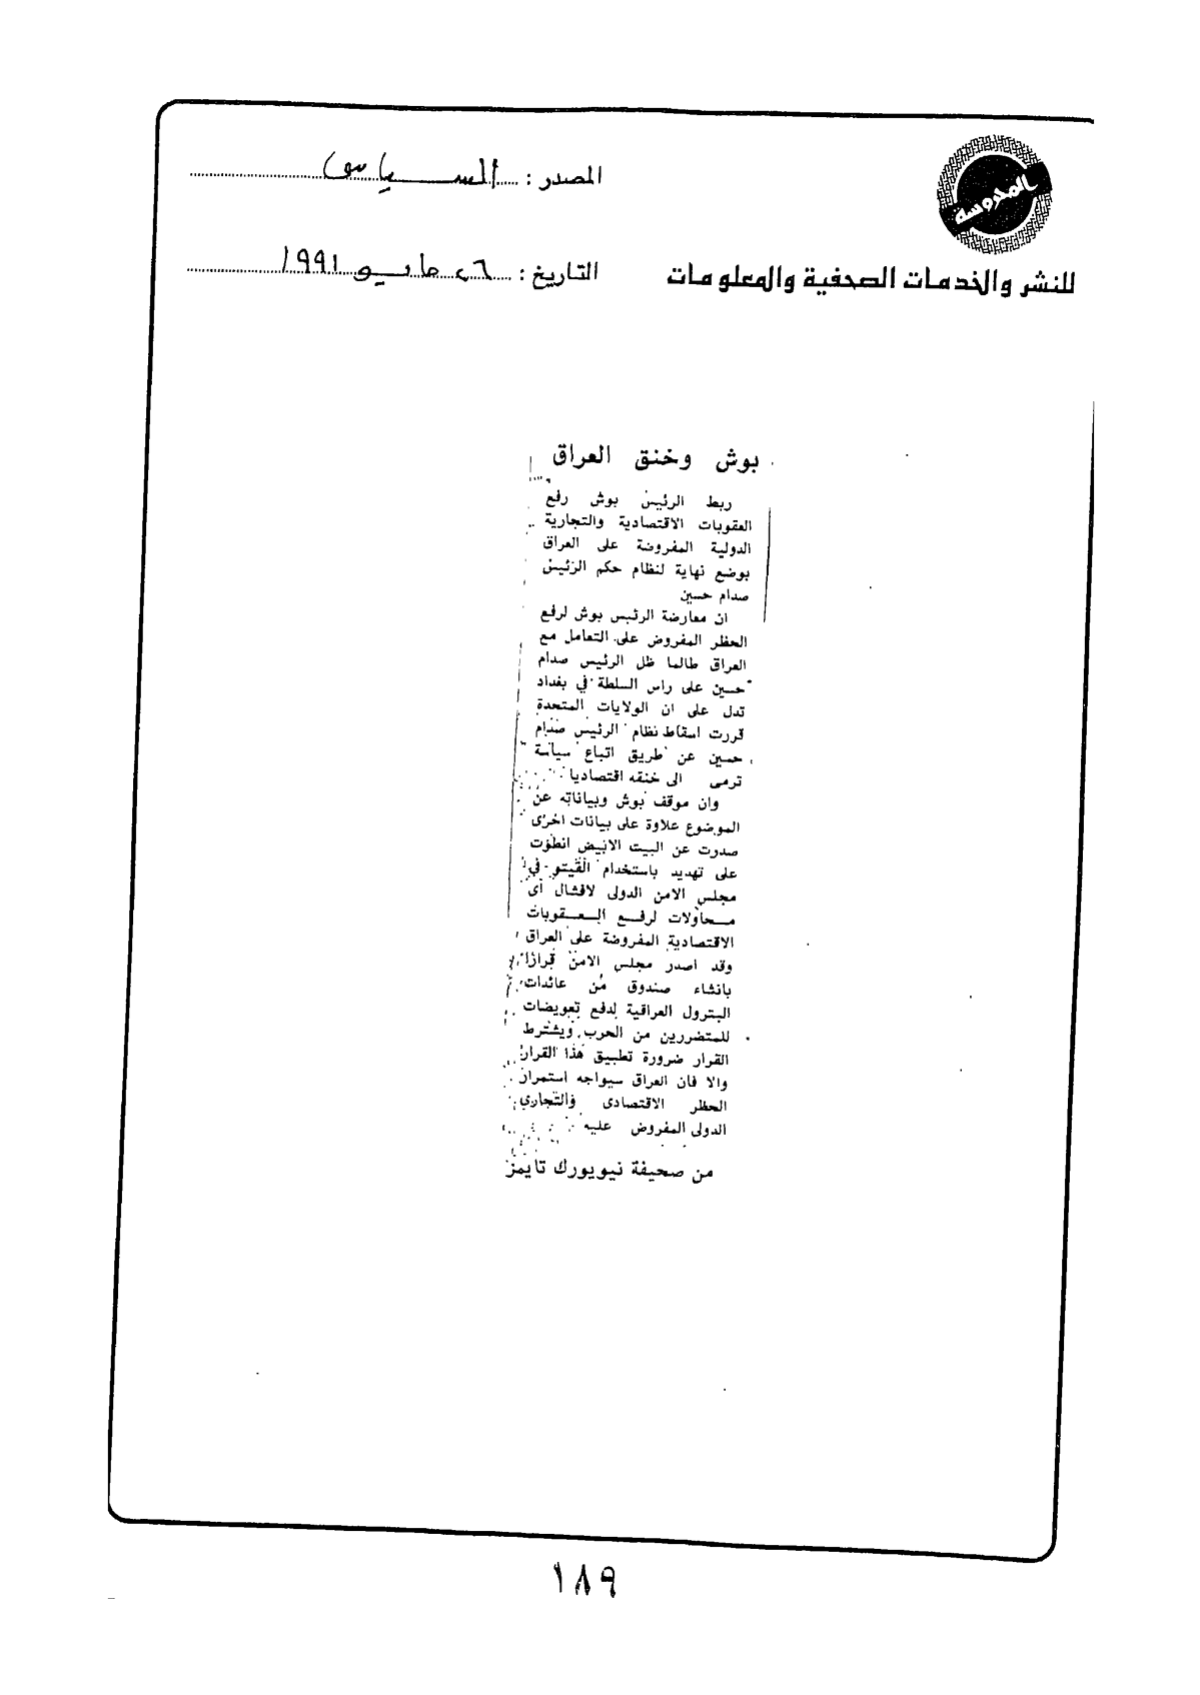 المحروسة
للنشر والخدمات الصحفية والمعلومات
المصدر : السياسى
التاريخ : ٢٦ مايو ١٩٩١
بوش وخنق العراق
ربط الرئيس بوش رفع
العقوبات الاقتصادية والتجارية
الدولية المفروضة على العراق
بوضع نهاية لنظام حكم الرئيس
صدام حسين
ان معارضة الرئيس بوش لرفع
الحظر المفروض على التعامل مع
العراق طالما ظل الرئيس صدام
حسين على راس السلطة فى بغداد
تدل على ان الولايات المتحدة
قررت اسقاط نظام الرئيس صدام
حسين عن طريق اتباع سياسة
ترمى الى خنقه اقتصاديا
وان موقف بوش وبياناته عن
الموضوع علاوة على بيانات اخرى
صدرت عن البيت الابيض انطوت
على تهديد باستخدام الفيتو فى
مجلس الامن الدولى لافشال أى
محاولات لرفع العقوبات
الاقتصادية المفروضة على العراق
وقد اصدر مجلس الامن قرارا
بانشاء صندوق من عائدات
البترول العراقية لدفع تعويضات
للمتضررين من الحرب ويشترط
القرار ضرورة تطبيق هذا القرار
والا فان العراق سيواجه استمرار
الحظر الاقتصادى والتجارى
الدولى المفروض عليه
من صحيفة نيويورك تايمز
١٨٩